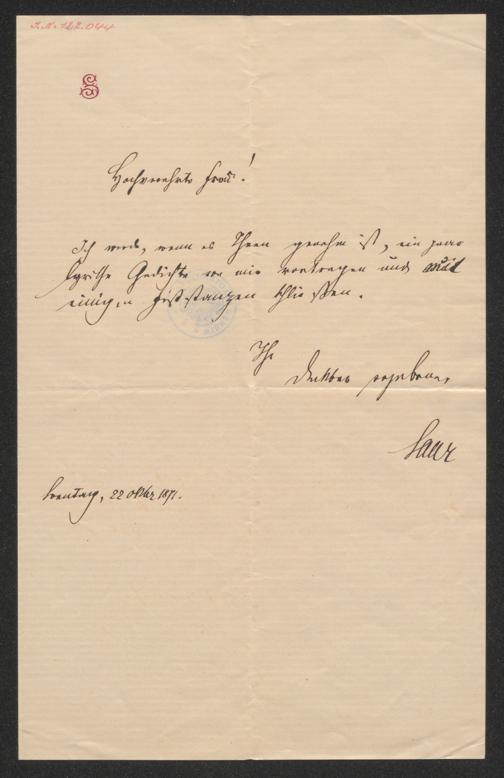 I.N. 122.044
S
Hochverehrte Frau!
Ich werde, wenn es Ihnen genehm ist, ein paar
lyrische Gedichte von mir vortragen und mit
einigen schließen.
Ihr
dankbar ergebener
Saar
Sonntag, 22 Oktbr 1871.